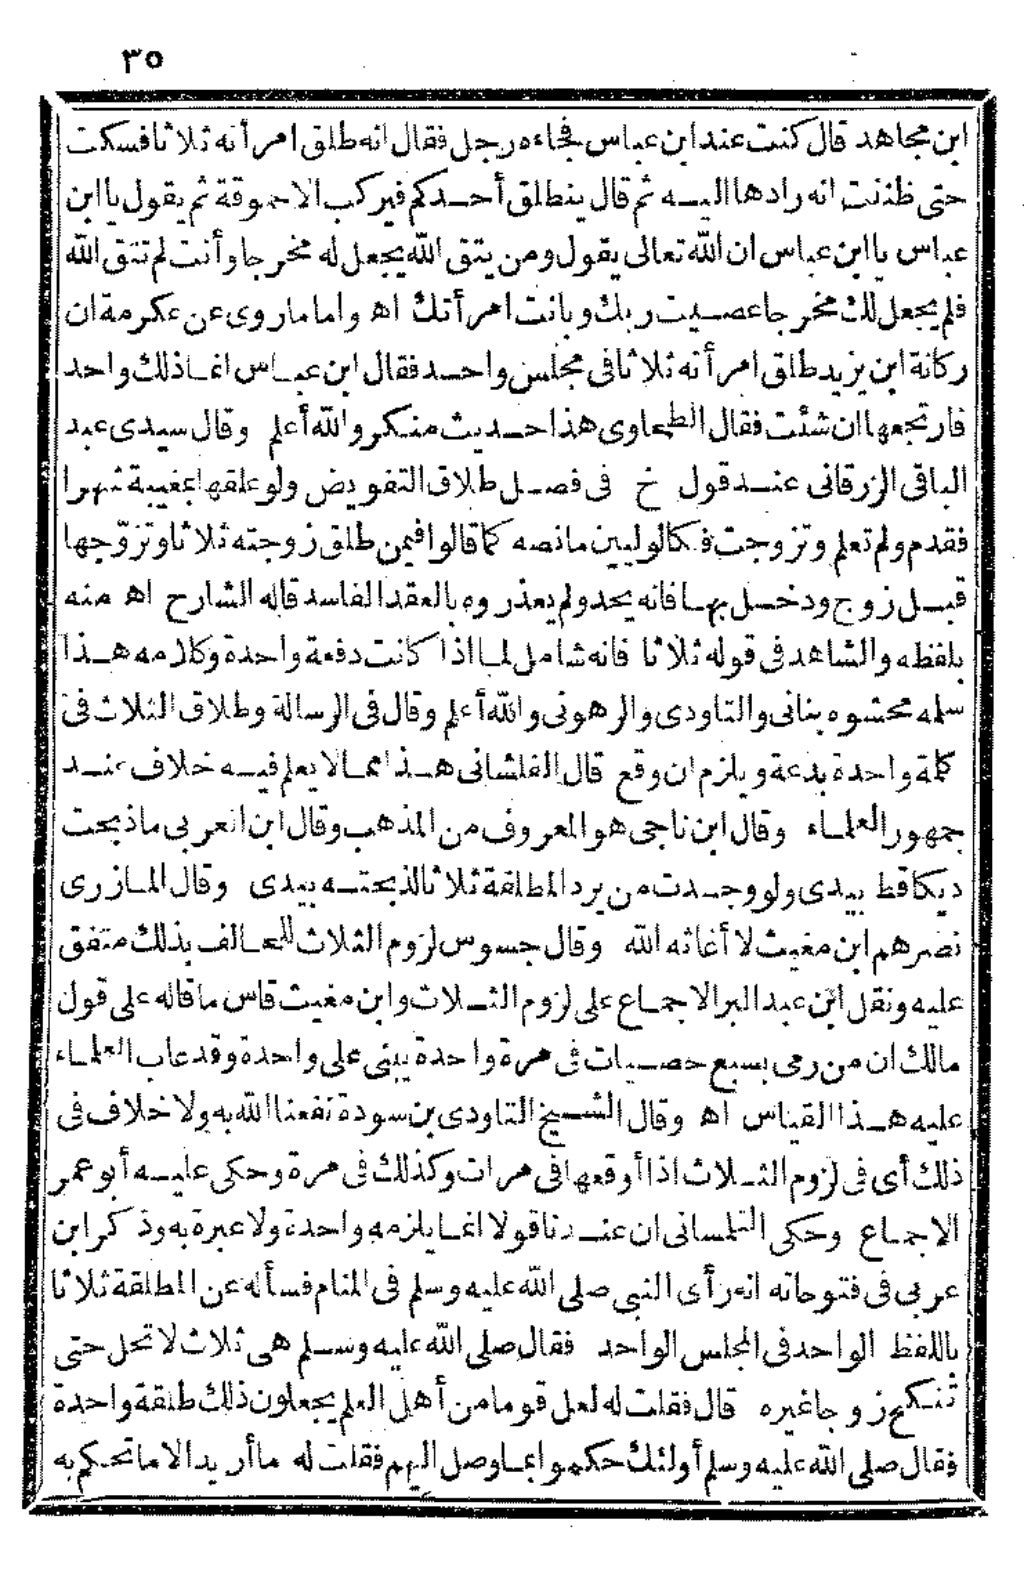 ٣٥
ابن مجاهد قال كنت عند ابن عباس فجاءه رجل فقال انه طلق امرأته ثلاثا فسكت
حتى ظننت انه رادها اليه ثم قال ينطلق أحدكم فيركب الاحموقة ثم يقول يا ابن
عباس يا ابن عباس ان الله تعالى يقول ومن يتق الله يجعل له مخرجا وأنت لم تتق الله
فلم يجعل لك مخرجا عصيت ربك وبانت امرأتك اه واما ما روى عن عكرمة ان
ركانة ابن يزيد طلق امرأته ثلاثا فى مجلس واحد فقال ابن عباس انما ذلك واحد
فارتجعها ان شئت فقال الطحاوى هذا حديث منكر والله أعلم وقال سيدى عبد
الباقى الزرقانى عند قول خ فى فصل طلاق التفويض ولو علقها بمغيبه شهرا
فقدم ولم تعلم وتزوجت فكالوليين مانصه كما قالوا فيمن طلق زوجته ثلاثا وتزوّجها
قبل زوج ودخل بها فانه يحد ولم يعذروه بالعقد الفاسد قاله الشارح اه منه
بلفظه والشاهد فى قوله ثلاثا فانه شامل لما اذا كانت دفعة واحدة وكلامه هذا
سلمه محشوه بنانى والتاودى والرهونى والله أعلم وقال فى الرسالة وطلاق الثلاث فى
كلمة واحدة بدعة ويلزم ان وقع قال الفلشانى هذا مما لا يعلم فيه خلاف عند
جمهور العلماء وقال ابن ناجى هو المعروف من المذهب وقال ابن العربى ما ذبحت
ديكا قط بيدى ولو وجدت من يرد المطلقة ثلاثا لذبحته بيدى وقال المازرى
نصرهم ابن مغيث لا أغاثه الله وقال جسوس لزوم الثلاث للحالف بذلك متفق
عليه ونقل ابن عبد البر الاجماع على لزوم الثلاث وابن مغيث قاس ما قاله على قول
مالك ان من رمى بسبع حصيات فى مرة واحدة يبنى على واحدة وقد عاب العلماء
عليه هذا القياس اه وقال الشيخ التاودى بن سودة نفعنا الله به ولا خلاف فى
ذلك أى فى لزوم الثلاث اذا أوقعها فى مرات وكذلك فى مرة وحكى عليه أبو عمر
الاجماع وحكى التلمسانى ان عندنا قولا انما يلزمه واحدة ولا عبرة به وذكر ابن
عربى فى فتوحاته انه رأى النبى صلى الله عليه وسلم فى المنام فسأله عن المطلقة ثلاثا
باللفظ الواحد فى المجلس الواحد فقال صلى الله عليه وسلم هى ثلاث لا تحل حتى
تنكح زوجا غيره قال فقلت له لعل قوما من أهل العلم يجعلون ذلك طلقة واحدة
فقال صلى الله عليه وسلم أولئك حكموا بما وصل اليهم فقلت له ما أريد الا ما تحكم به